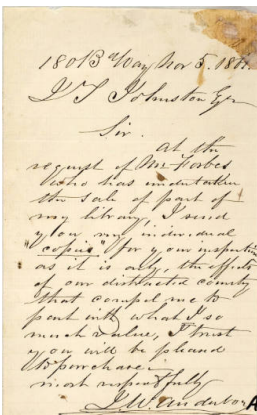 180 B'Way Nov 5. 186
J T Johnston Esqr
Sir.
At the
request of Mr Forbes
who has undertaken
the sale of part of
my library, I send
you my individual
"copies" for your inspection
as it is only, the effects
of our distracted country
that compel me to
part with what I so
much value, I trust
you will be pleased
to purchase.
most respectfully
A